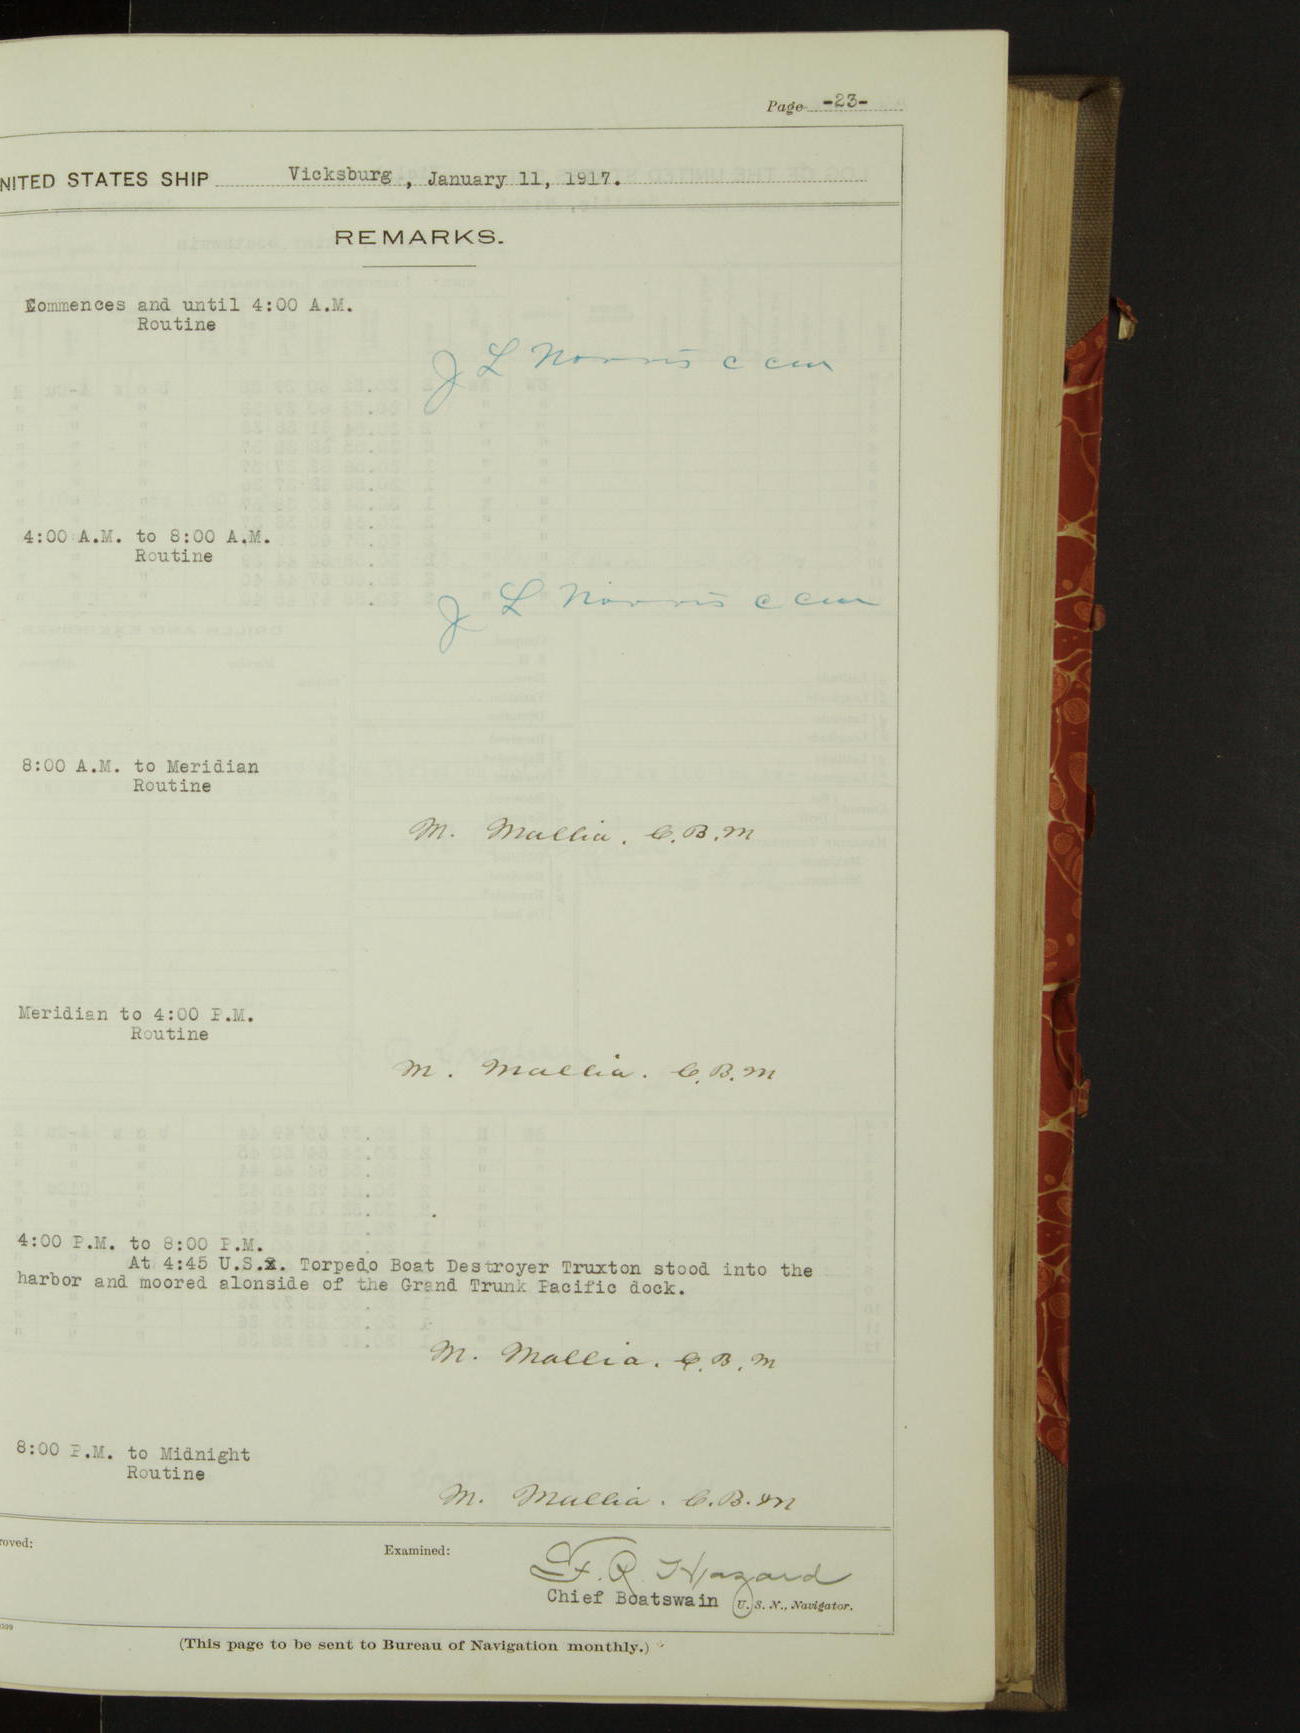 Page -23-
NITED STATES SHIP Vicksburg, January 11, 1917.
REMARKS.
Commences and until 4:00 A.M.
Routine
J L Norris c cm
4:00 A.M. to 8:00 A.M.
Routine
J L Norris c cm
8:00 A.M. to Meridian
Routine
M. Mallia. C.B.M
Meridian to 4:00 P.M.
Routine
M. Mallia. C.B.M
4:00 P.M. to 8:00 P.M.
At 4:45 U.S. Torpedo Boat Destroyer Truxton stood into the
harbor and moored alonside of the Grand Trunk Pacific dock.
M. Mallia. C.B.M
8:00 P.M. to Midnight
Routine
M. Mallia. C.B.M
roved:
Examined:
F. R. Hazard
Chief Boatswain U. S. N., Navigator.
(This page to be sent to Bureau of Navigation monthly.)